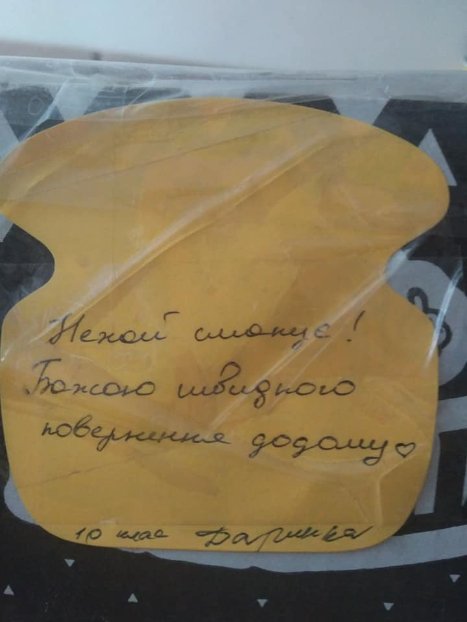 Нехай смакує!
Бажаю швидкого
повернення додому♡
10 клас Даринка